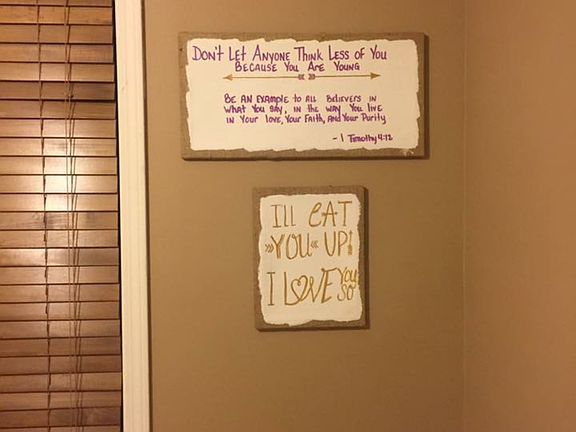 Don't Let Anyone Think Less of You
Because You Are Young
Be an example to all believers in
what you say, in the way you live
in your love, your faith, and your purity
- 1 Timothy 4:12
Ill EAT
YOU UP!
I LOVE YOU SO